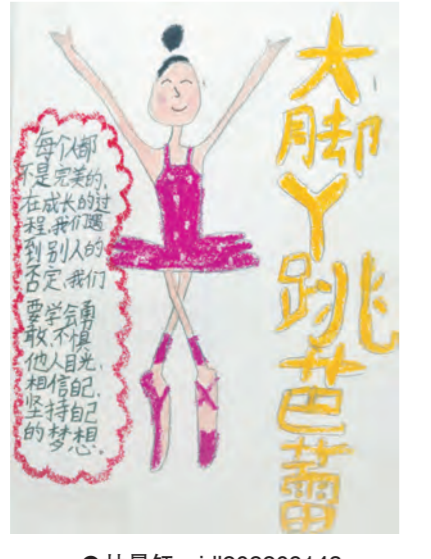 大脚丫跳芭蕾
每个人都
不是完美的,
在成长的过
程,我们遇
到别人的
否定,我们
要学会勇
敢,不惧
他人目光,
相信自己,
坚持自己
的梦想。